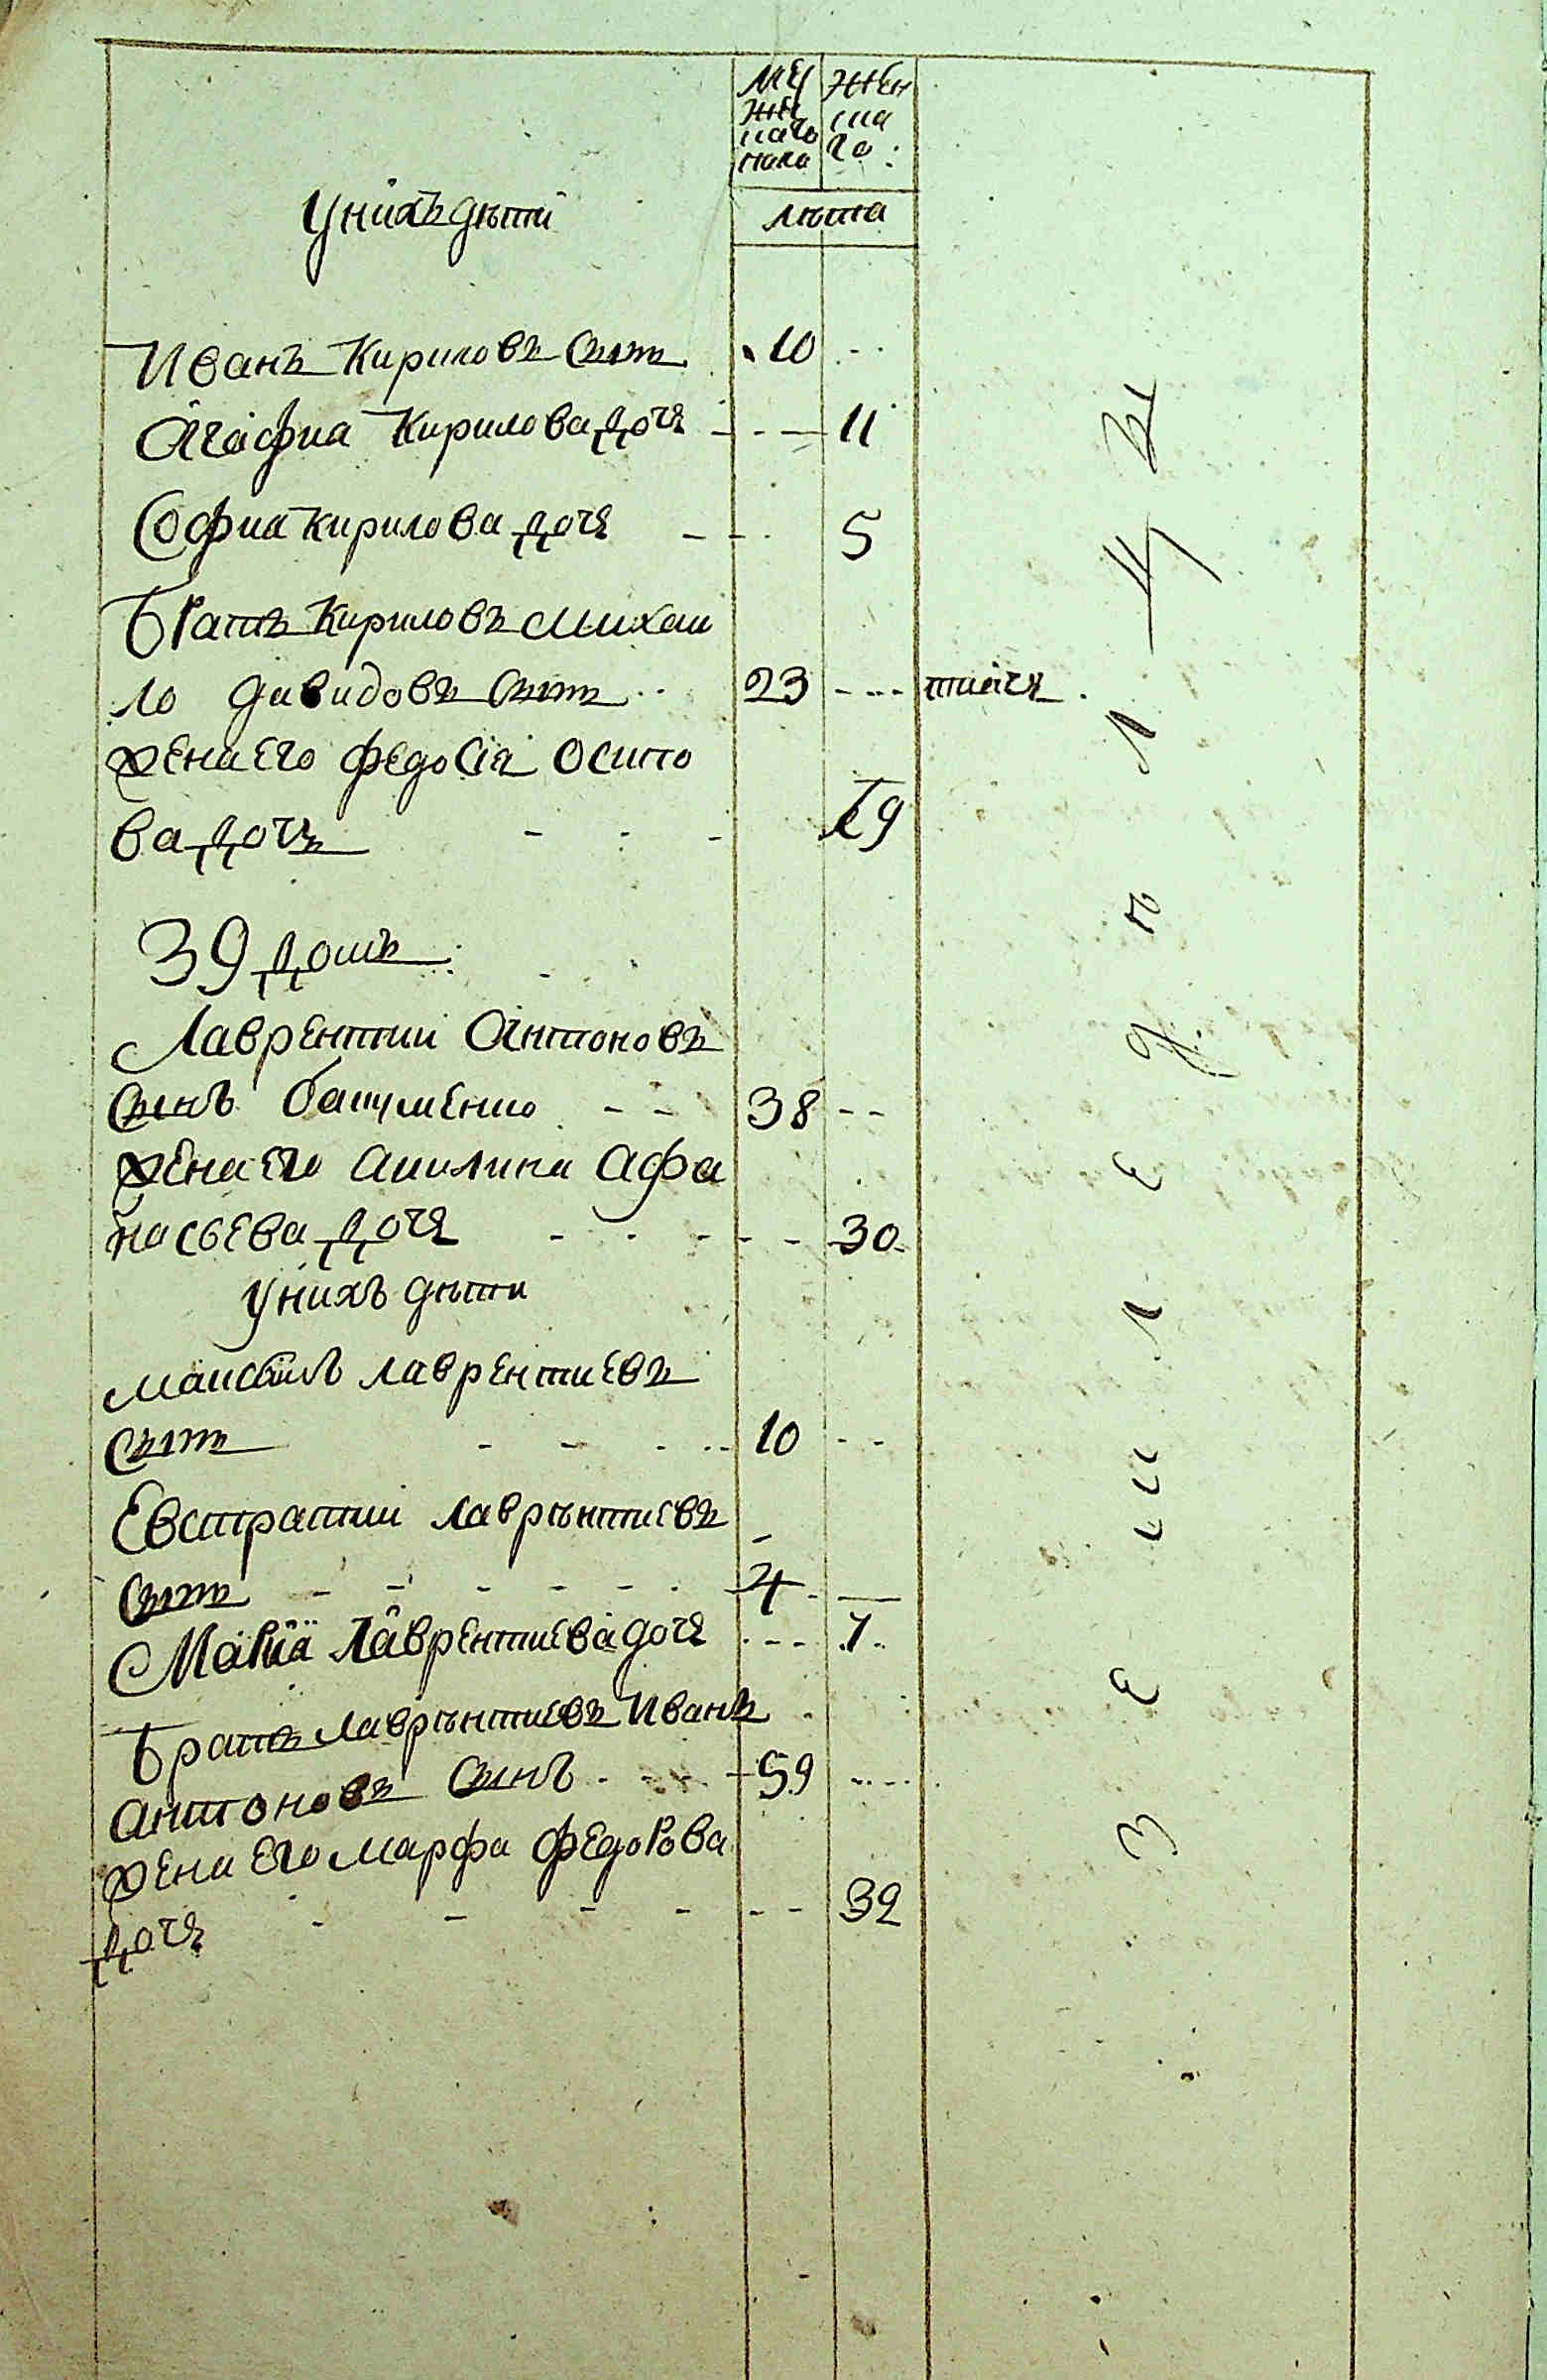 МУ
жес
каго
пола
жен
ска
го:
лѣта
У нихъ дѣти
Иванъ Кириловъ сынъ 10
Агафиа Кирилова дочь 11
Софиа Кирилова дочь 5
Братъ Кириловъ Михаи
ло Давидовъ сынъ 23
жена Его Федосіа Осипо
ва дочь 19
39 домъ
Лаврентии Антоновъ
сынъ 38
жена Его Акилина Афа
насьева дочь 30
У нихъ дѣти
Лаврентиевъ
сынъ 10
Евстратии Лаврѣнтиевъ
сынъ 4
Мариа Лаврентиева дочь 7
Братъ Лаврѣнтиевъ Иванъ
Антоновъ сынъ 59
жена Его Марфа Федорова
дочь 32
З Е М Л Е Д Ѣ Л Ц Ы